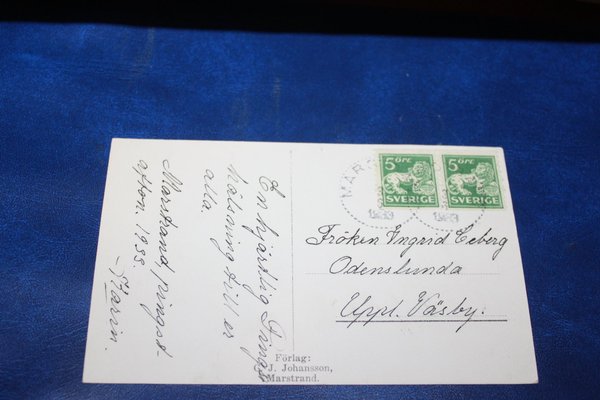 En hjärtlig Pingst
hälsning till er
alla.
Marstrand pingst-
afton. 1933.
Karin.
Förlag:
J. Johansson,
Marstrand.
5 ÖRE
SVERIGE
5 ÖRE
SVERIGE
MAR
Fröken Ingrid Ceberg
Odenslunda
Uppl. Väsby.